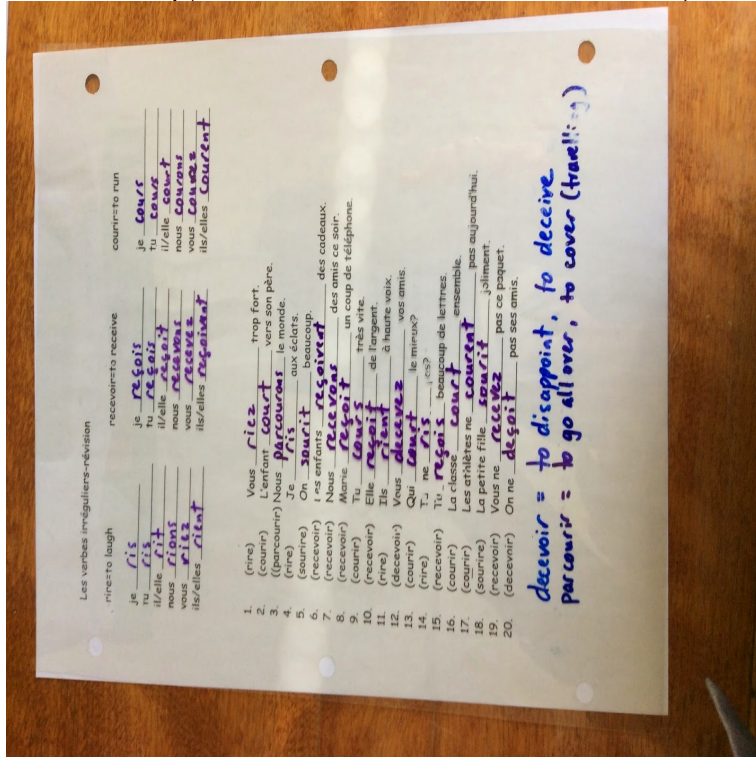 Les verbes irréguliers-révision
rire=to laugh recevoir=to receive courir=to run
je ris je reçois je cours
tu ris tu reçois tu cours
il/elle rit il/elle reçoit il/elle court
nous rions nous recevons nous courons
vous riez vous recevez vous courez
ils/elles rient ils/elles reçoivent ils/elles courent
1. (rire) Vous riez trop fort.
2. (courir) L'enfant court vers son père.
3. ((parcourir) Nous parcourons le monde.
4. (rire) Je ris aux éclats.
5. (sourire) On sourit beaucoup.
6. (recevoir) Les enfants reçoivent des cadeaux.
7. (recevoir) Nous recevons des amis ce soir.
8. (recevoir) Marie reçoit un coup de téléphone.
9. (courir) Tu cours très vite.
10. (recevoir) Elle reçoit de l'argent.
11. (rire) Ils rient à haute voix.
12. (decevoir) Vous decevez vos amis.
13. (courir) Qui court le mieux?
14. (rire) Tu ne ris
15. (recevoir) Tu reçois beaucoup de lettres.
16. (courir) La classe court ensemble.
17. (courir) Les athlètes ne courent pas aujourd'hui.
18. (sourire) La petite fille sourit joliment.
19. (recevoir) Vous ne recevez pas ce paquet.
20. (decevoir) On ne deçoit pas ses amis.
decevoir = to disappoint, to deceive
parcourir = to go all over, to cover (travelling)